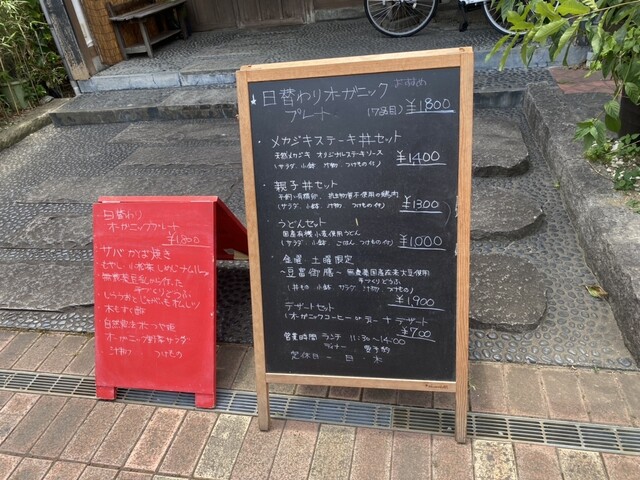 日替わり
オーガニックプレート
¥1800
サバかば焼き
もやし 小松菜 しめじナムル
無農薬豆乳から作った
手づくりとうふ
しらうおとじゃがいも
もずく酢
自然発生
オーガニック野菜サラダ
汁物 つけもの
日替わりオーガニック おすすめ
プレート (17品目) ¥1800
・メカジキステーキ丼セット
天然メカジキ オリジナルステーキソース
(サラダ、小鉢、汁物、つけもの付) ¥1400
・親子丼セット
平飼い有精卵、抗生物質不使用の鶏肉
(サラダ、小鉢、汁物、つけもの付) ¥1300
・うどんセット
国産有機小麦使用うどん
(サラダ、小鉢、ごはん、つけもの付) ¥1,000
・金曜 土曜限定
~豆富御膳~ 無農薬国産大豆使用
手づくりとうふ
(丼もの 小鉢 サラダ 汁物 つけもの)
¥1900
・デザートセット
(オーガニックコーヒー or ティー + デザート
¥700
営業時間 ランチ 11:30~14:00
ディナー 要予約
定休日 - 日・木